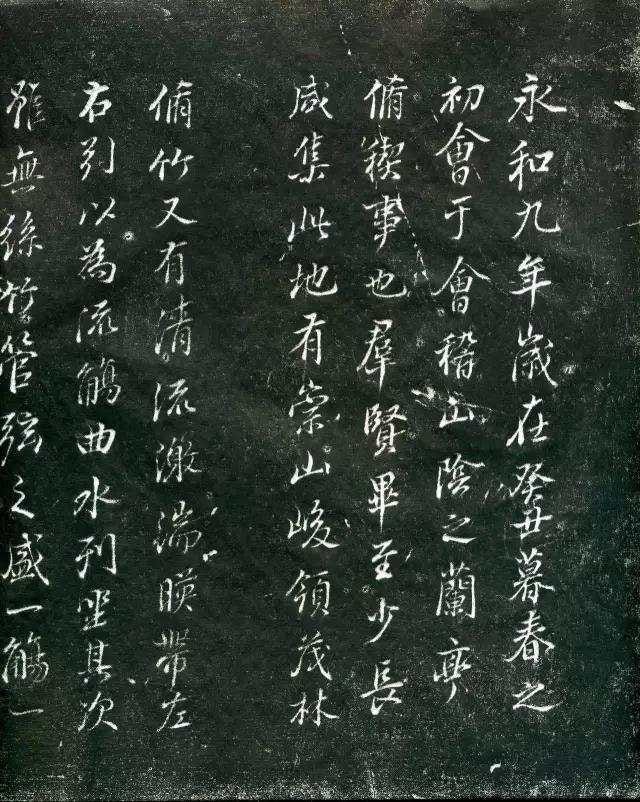 永和九年歲在癸丑暮春之
初會于會稽山陰之蘭亭
脩稧事也羣賢畢至少長
咸集此地有崇山峻領茂林
脩竹又有清流激湍暎帶左
右引以為流觴曲水列坐其次
雖無絲竹管弦之盛一觴一